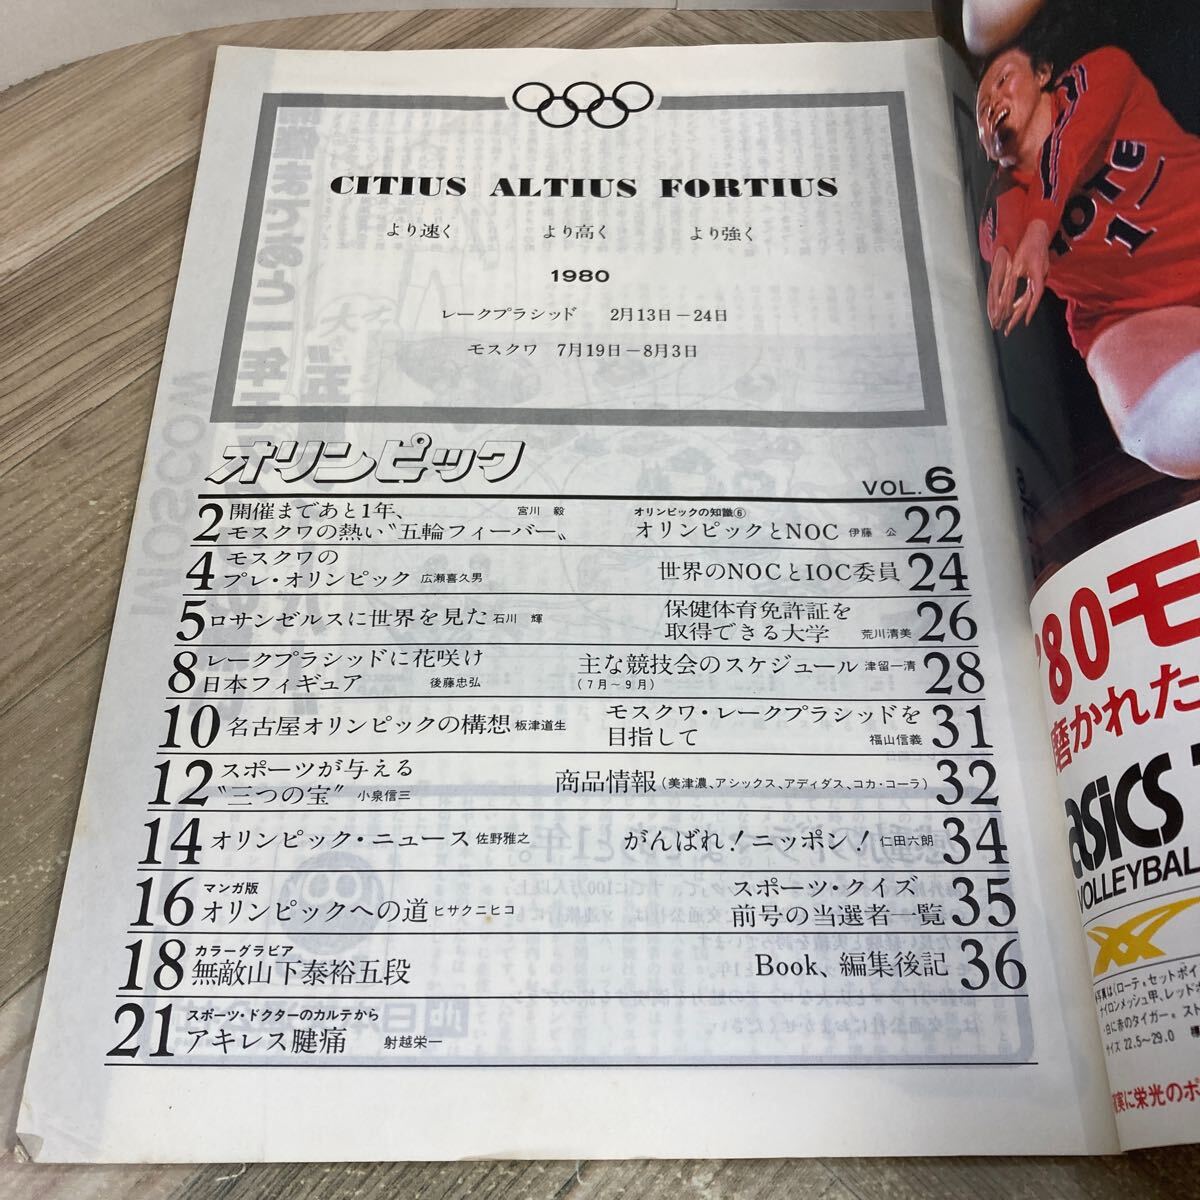 CITIUS ALTIUS FORTIUS
より速く より高く より強く
1980
レークプラシッド 2月13日－24日
モスクワ 7月19日－8月3日
オリンピック
VOL.6
2 開催まであと1年、 宮川 毅
モスクワの熱い〝五輪フィーバー〟
4 モスクワの
プレ・オリンピック 広瀬喜久男
5 ロサンゼルスに世界を見た 石川 輝
8 レークプラシッドに花咲け
日本フィギュア 後藤忠弘
10 名古屋オリンピックの構想 板津道生
12 スポーツが与える
〝三つの宝〟 小泉信三
14 オリンピック・ニュース 佐野雅之
16 マンガ版
オリンピックへの道 ヒサクニヒコ
18 カラーグラビア
無敵山下泰裕五段
21 スポーツ・ドクターのカルテから
アキレス腱痛 射越栄一
オリンピックの知識⑥
オリンピックとNOC 伊藤 公 22
世界のNOCとIOC委員 24
保健体育免許証を
取得できる大学 荒川清美 26
主な競技会のスケジュール 津留一清 28
(7月～9月)
モスクワ・レークプラシッドを
目指して 福山信義 31
商品情報(美津濃、アシックス、アディダス、コカ・コーラ) 32
がんばれ！ニッポン！ 仁田六朗 34
スポーツ・クイズ
前号の当選者一覧 35
Book、編集後記 36
1
'80モ
磨かれた
asics
VOLLEYBAL
写真は(ローテ・セットポイ
ナイロンメッシュ甲、レッドボ
・白に赤のタイガー。スト
サイズ 22.5～29.0
実に栄光のポ